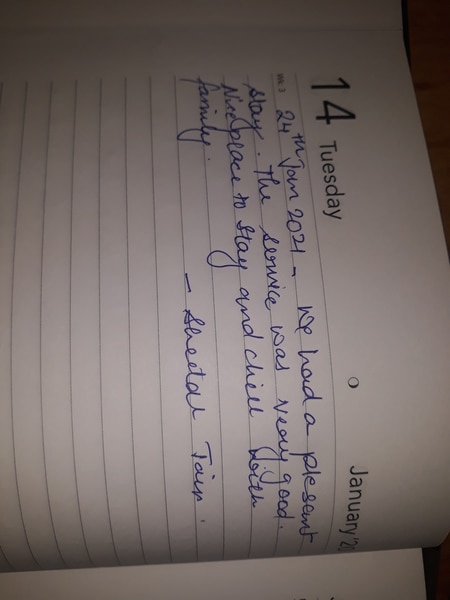 14 Tuesday
January '2
WK 3
24th Jan 2021 - We had a plesant
stay. The service was very good.
Nice place to stay and chill with
family.
- Sheetal Jain.